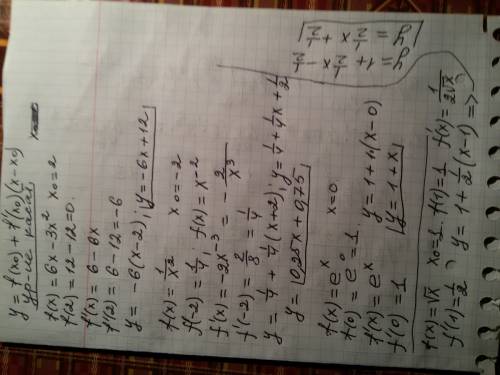 y = f(x₀) + f'(x₀)(x-x₀)
ур-ие касат.
f(x) = 6x-3x² x₀=2
f(2) = 12-12=0.
f'(x) = 6-6x
f'(2) = 6-12=-6
y = -6(x-2); y=-6x+12
f(x) = 1/x² x₀=-2
f(-2) = 1/4; f(x) = x⁻²
f'(x) = -2x⁻³ = -2/x³
f'(-2) = 2/8 = 1/4
y = 1/4 + 1/4(x+2); y = 1/4 + 1/4x + 1/2
y = 0,25x + 0,75
f(x) = eˣ x=0
f(0) = e⁰ = 1.
f'(x) = eˣ y = 1+1(x-0)
f'(0) = 1 y = 1+x
f(x) = √x x₀=1. f(1)=1 f'(x) = 1/2√x
f'(1) = 1/2 y = 1 + 1/2(x-1) =>
y = 1 + 1/2x - 1/2
y = 1/2x + 1/2